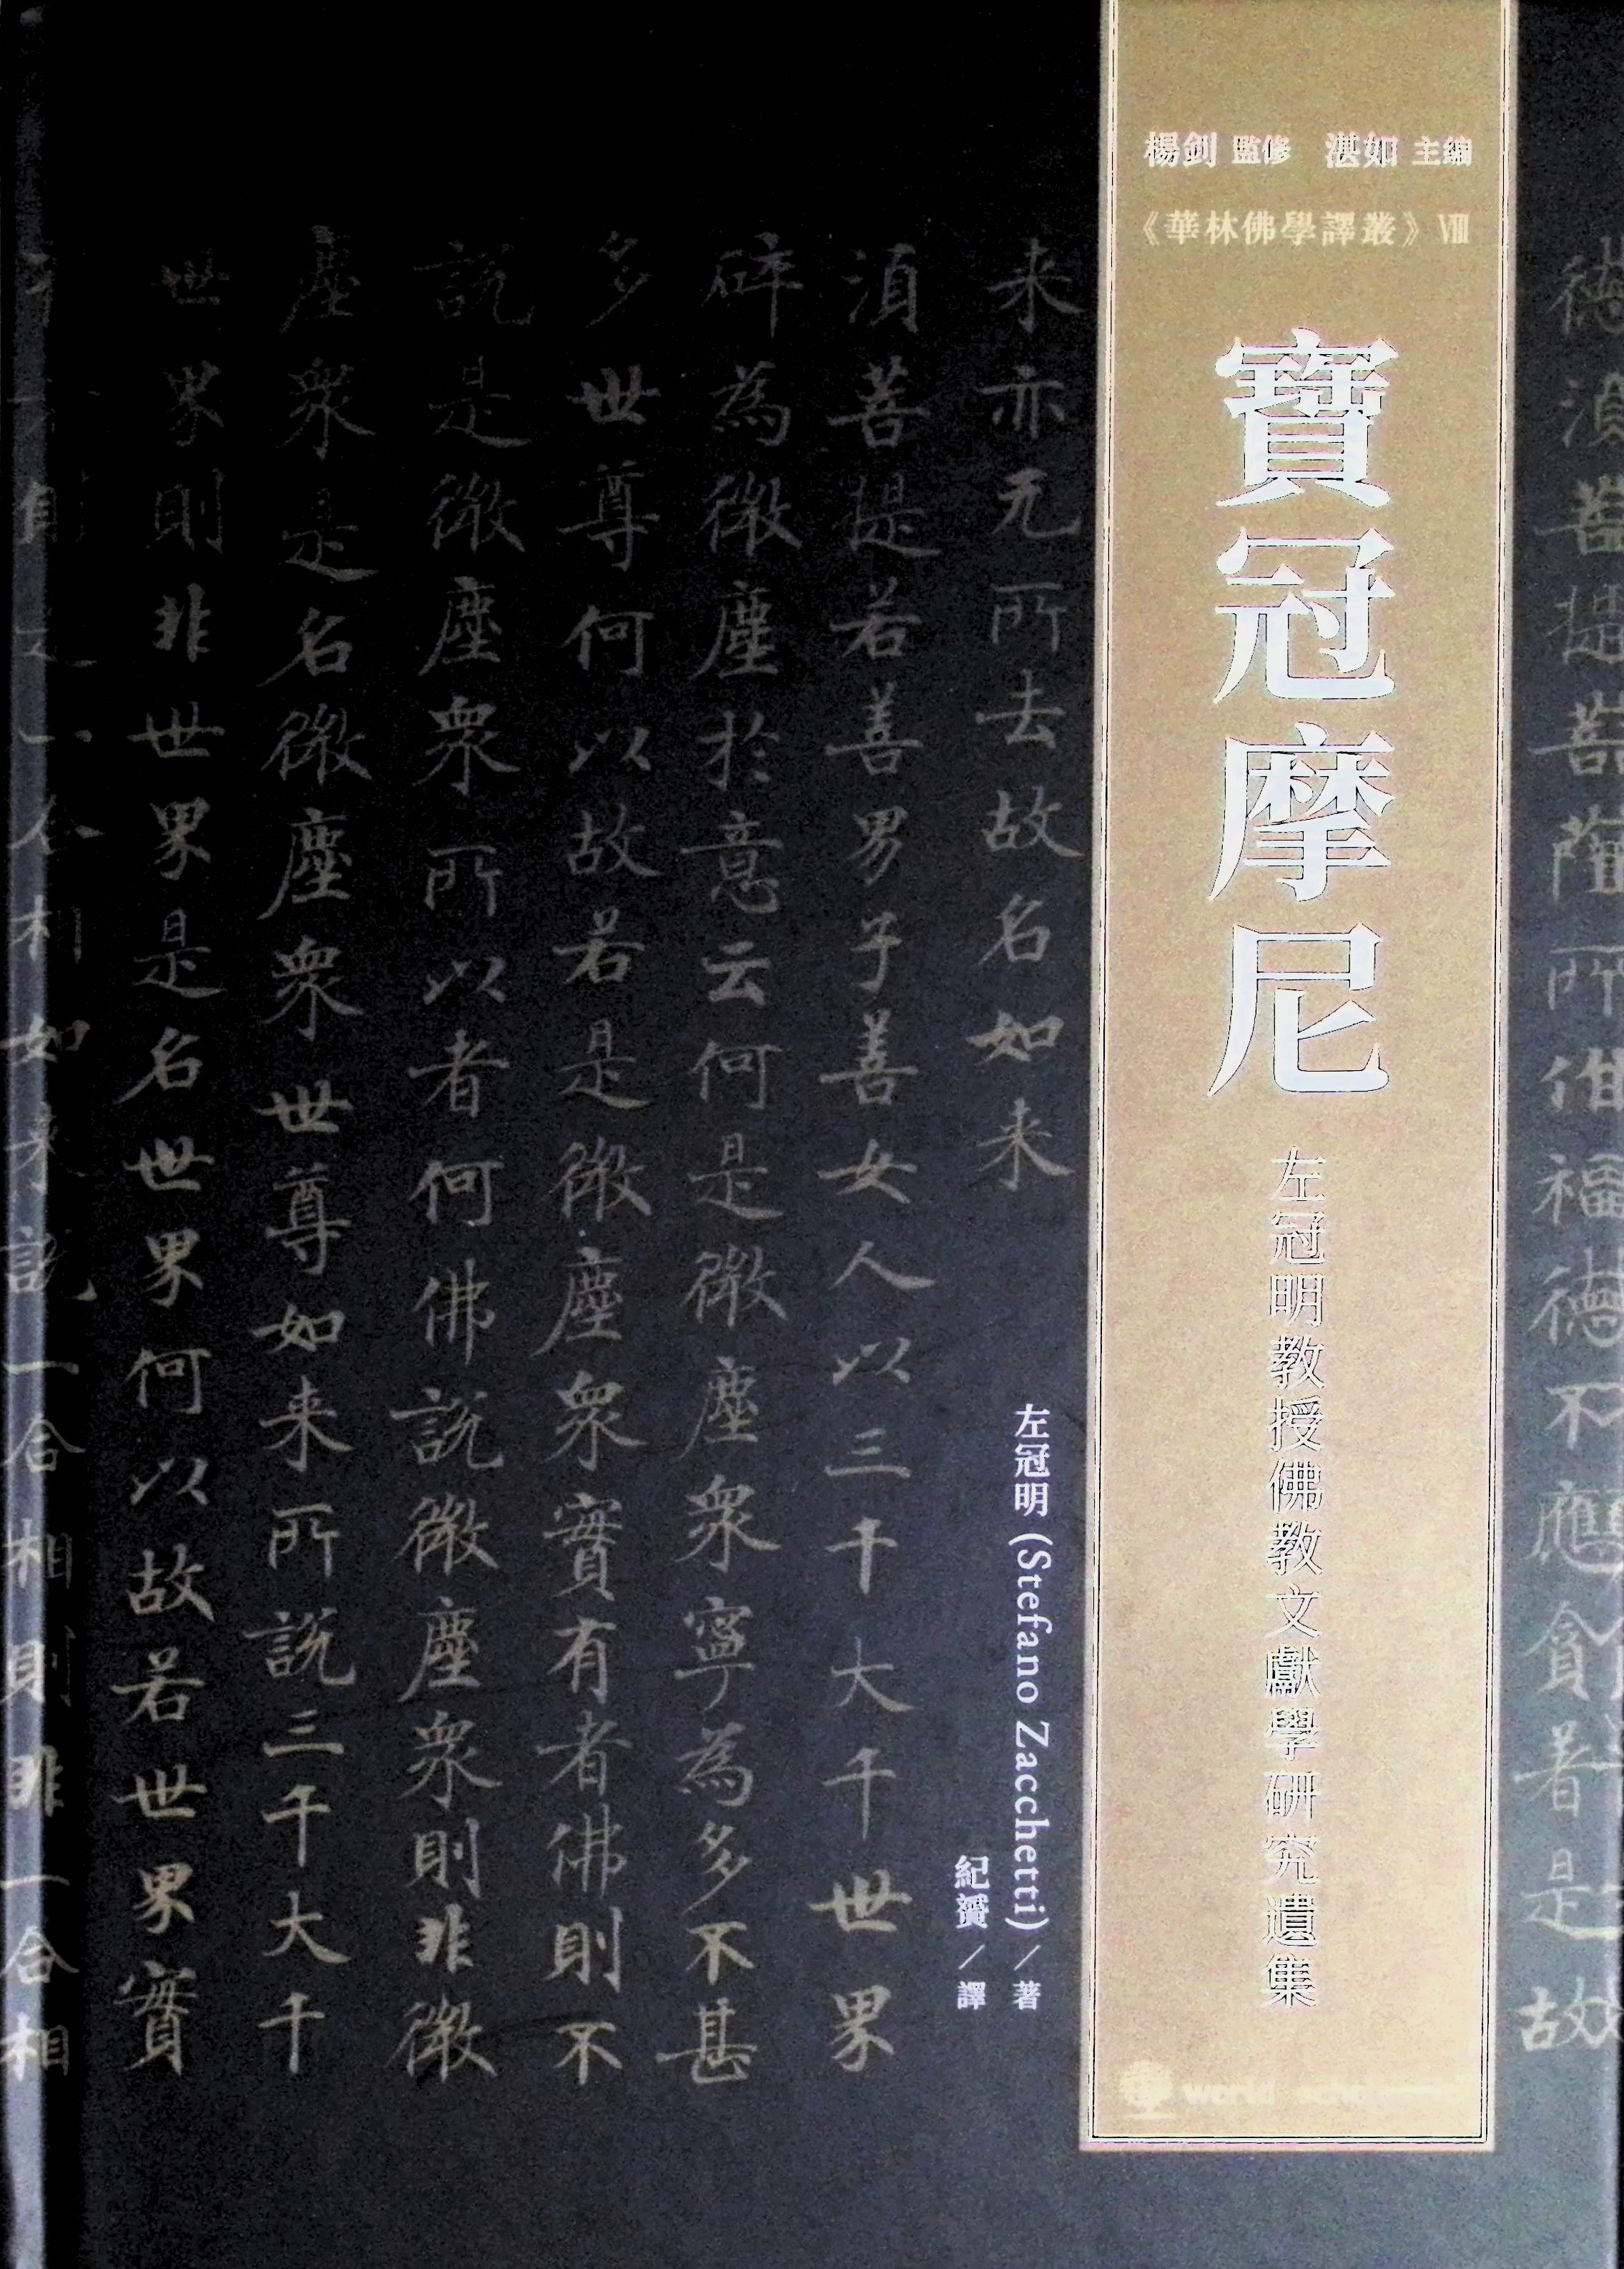 楊釗 監修 湛如 主編
《華林佛學譯叢》Ⅷ
寶冠摩尼
左冠明教授佛教文獻學研究遺集
左冠明 (Stefano Zacchetti) / 著
紀贇 / 譯
world
德湏菩提菩薩所作福德不應貪著是故
来亦无所去故名如来
湏菩提若善男子善女人以三千大千世界
碎為微塵於意云何是微塵衆寧為多不甚
多世尊何以故若是微塵衆實有者佛則不
說是微塵衆所以者何佛說微塵衆則非微
塵衆是名微塵衆世尊如来所說三千大千
世界則非世界是名世界何以故若世界實
一合相如来說一合相則非一合相